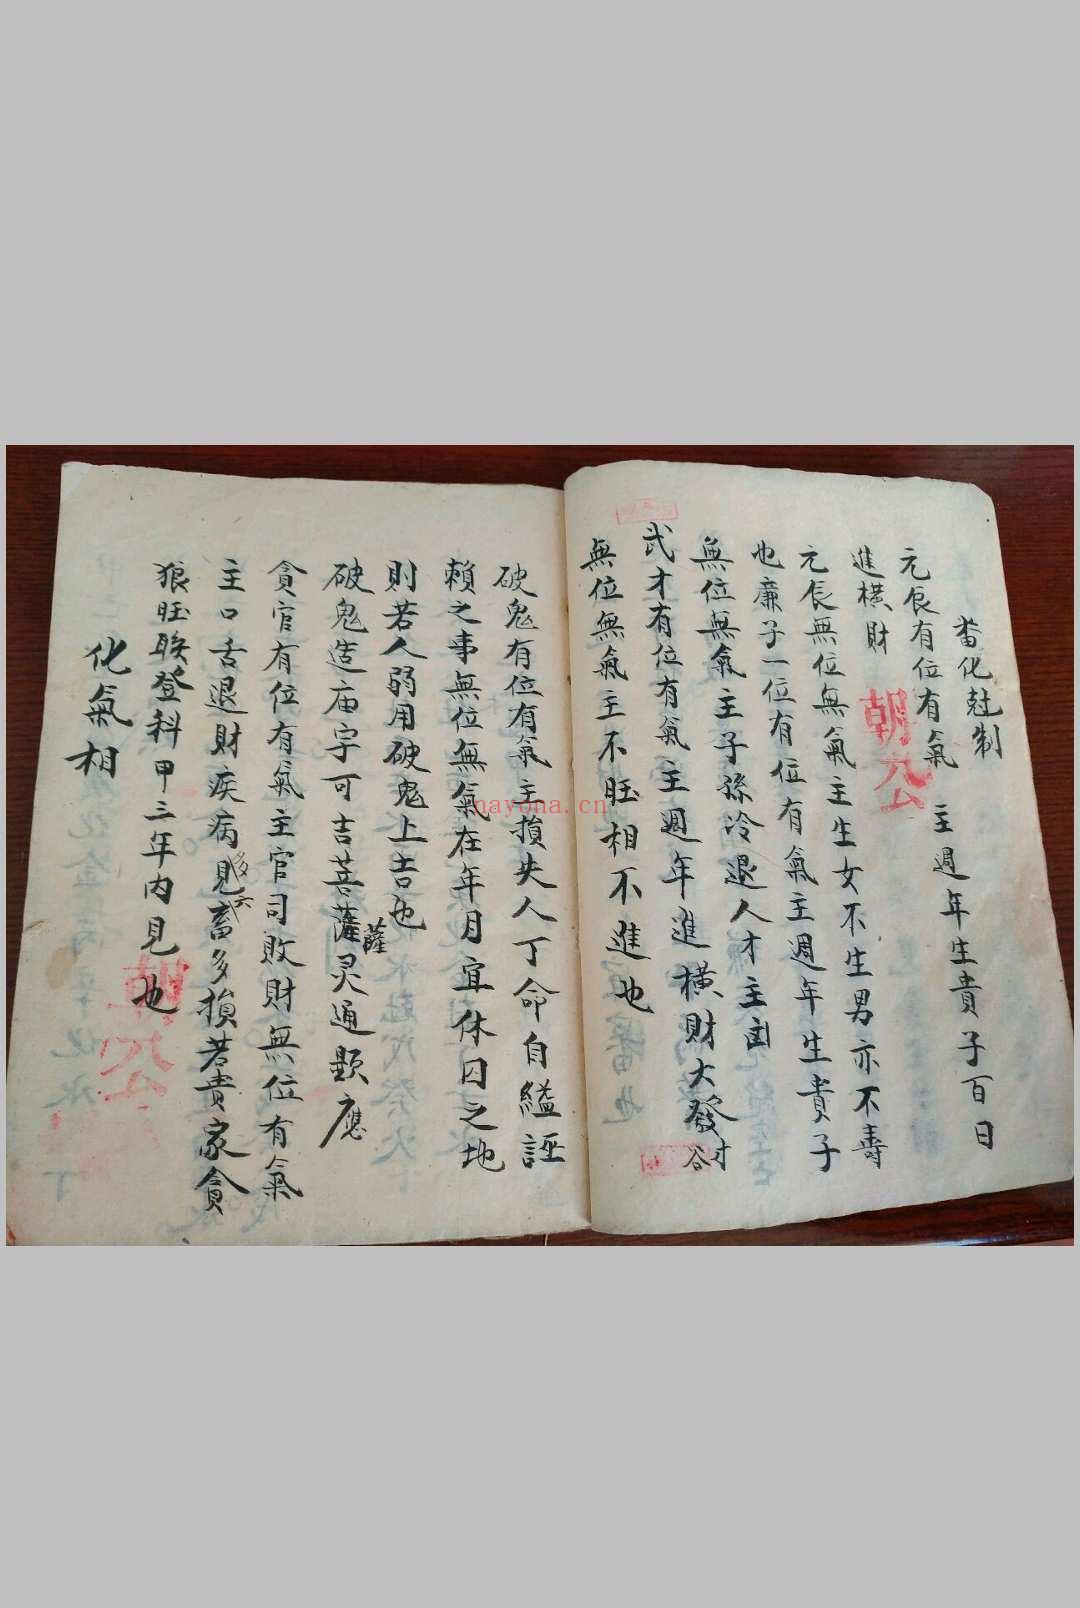 畨化尅制
元辰有位有氣 主週年生貴子百日
進横財
元辰無位無氣主生女不生男亦不壽
也廉子一位有位有氣主週年生貴子
無位無氣主子孫冷退人才主凶
武才有位有氣主週年進横財大發
無位無氣主不旺相不進也
破鬼有位有氣主損失人丁命自縊誣
賴之事無位無氣在年月宜休囚之地
則若人弱用破鬼上吉也
破鬼造庙宇可吉菩薩灵通顕應
薩
貪官有位有氣主官司敗財無位有氣
主口舌退財疾病見畜多損若貴家貪
多六
狼旺联登科甲三年内見也
化氣相
朝公
nayona.cn